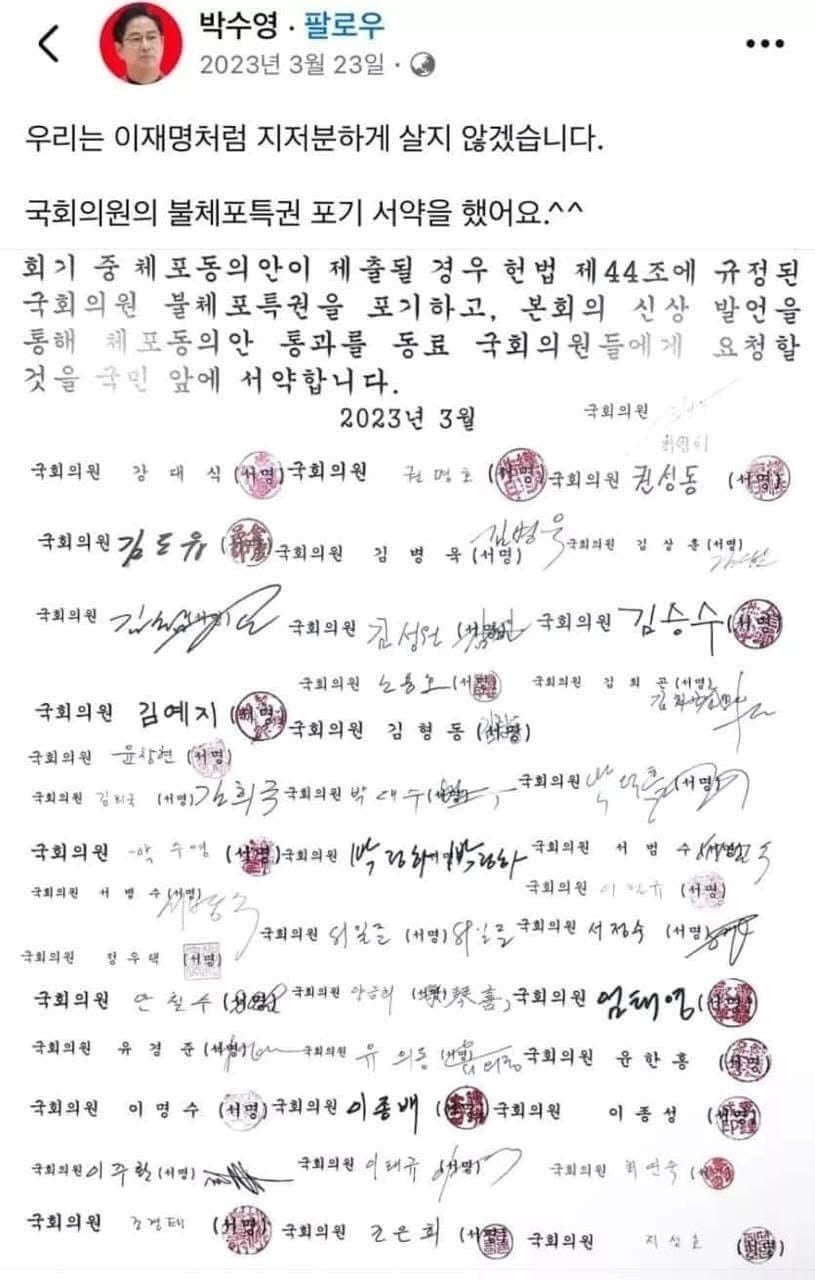 박수영 · 팔로우
2023년 3월 23일 ·
우리는 이재명처럼 지저분하게 살지 않겠습니다.
국회의원의 불체포특권 포기 서약을 했어요.^^
회기 중 체포동의안이 제출될 경우 헌법 제44조에 규정된
국회의원 불체포특권을 포기하고, 본회의 신상 발언을
통해 체포동의안 통과를 동료 국회의원들에게 요청할
것을 국민 앞에 서약합니다.
2023년 3월
국회의원
국회의원 강대식 (서명) 국회의원 권명호 (서명) 국회의원 권성동 (서명)
국회의원 김도읍 국회의원 김병욱 (서명) 김병욱 국회의원 김상훈 (서명)
국회의원 국회의원 김성원 (서명) 국회의원 김승수 (서명)
국회의원 노용호 (서명) 국회의원 김희곤 (서명)
국회의원 김예지 (서명) 국회의원 김형동 (서명)
국회의원 윤창현 (서명)
국회의원 김희국 (서명) 김희국 국회의원 박대수 국회의원 박덕흠 (서명)
국회의원 박수영 (서명) 국회의원 박형수 국회의원 서범수
국회의원 서병수 (서명) 국회의원 (서명)
국회의원 서일준 (서명) 서일준 국회의원 서정숙 (서명)
국회의원 정우택 (서명)
국회의원 안철수 (서명) 국회의원 양금희 국회의원 엄태영 (서명)
국회의원 유경준 (서명) 국회의원 유의동 (서명) 국회의원 윤한홍 (서명)
국회의원 이명수 (서명) 국회의원 이종배 (서명) 국회의원 이종성 (서명)
국회의원 이주환 (서명) 국회의원 이태규 (서명) 국회의원 최연숙 (서명)
국회의원 조경태 (서명) 국회의원 조은희 (서명) 국회의원 지성호 (서명)